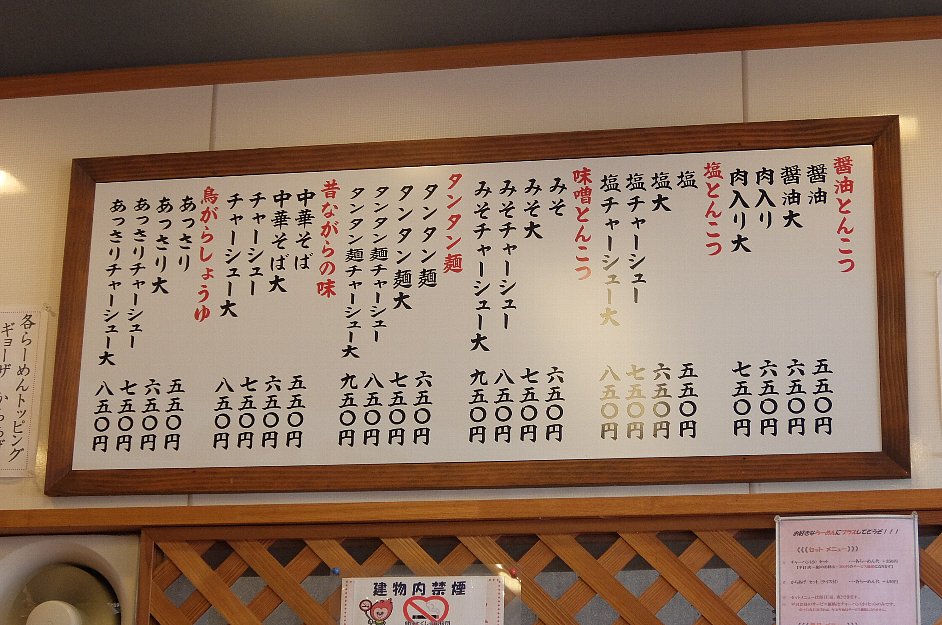 醤油とんこつ
醤油 五五〇円
醤油大 六五〇円
肉入り 六五〇円
肉入り大 七五〇円
塩とんこつ
塩 五五〇円
塩大 六五〇円
塩チャーシュー 七五〇円
塩チャーシュー大 八五〇円
味噌とんこつ
みそ 六五〇円
みそ大 七五〇円
みそチャーシュー 八五〇円
みそチャーシュー大 九五〇円
タンタン麺
タンタン麺 六五〇円
タンタン麺大 七五〇円
タンタン麺チャーシュー 八五〇円
タンタン麺チャーシュー大 九五〇円
昔ながらの味
中華そば 五五〇円
中華そば大 六五〇円
チャーシュー 七五〇円
チャーシュー大 八五〇円
鳥がらしょうゆ
あっさり 五五〇円
あっさり大 六五〇円
あっさりチャーシュー 七五〇円
あっさりチャーシュー大 八五〇円
各らーめんトッピング
ギョーザ
建物内禁煙
お好きならーめんにプラスしてどうぞ！！！
《《《セット メニュー》》》